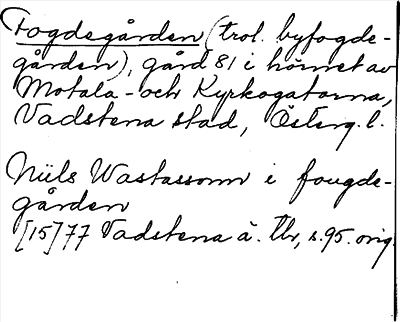 Fogdegården (trol. byfogde-
gården), gård 81 i hörnet av
Motala- och Kyrkogatorna,
Vadstena stad, Österg. l.
Niils Wastassonn i fougde-
gården
[15]77 Vadstena ä. Tb, s. 95. orig.